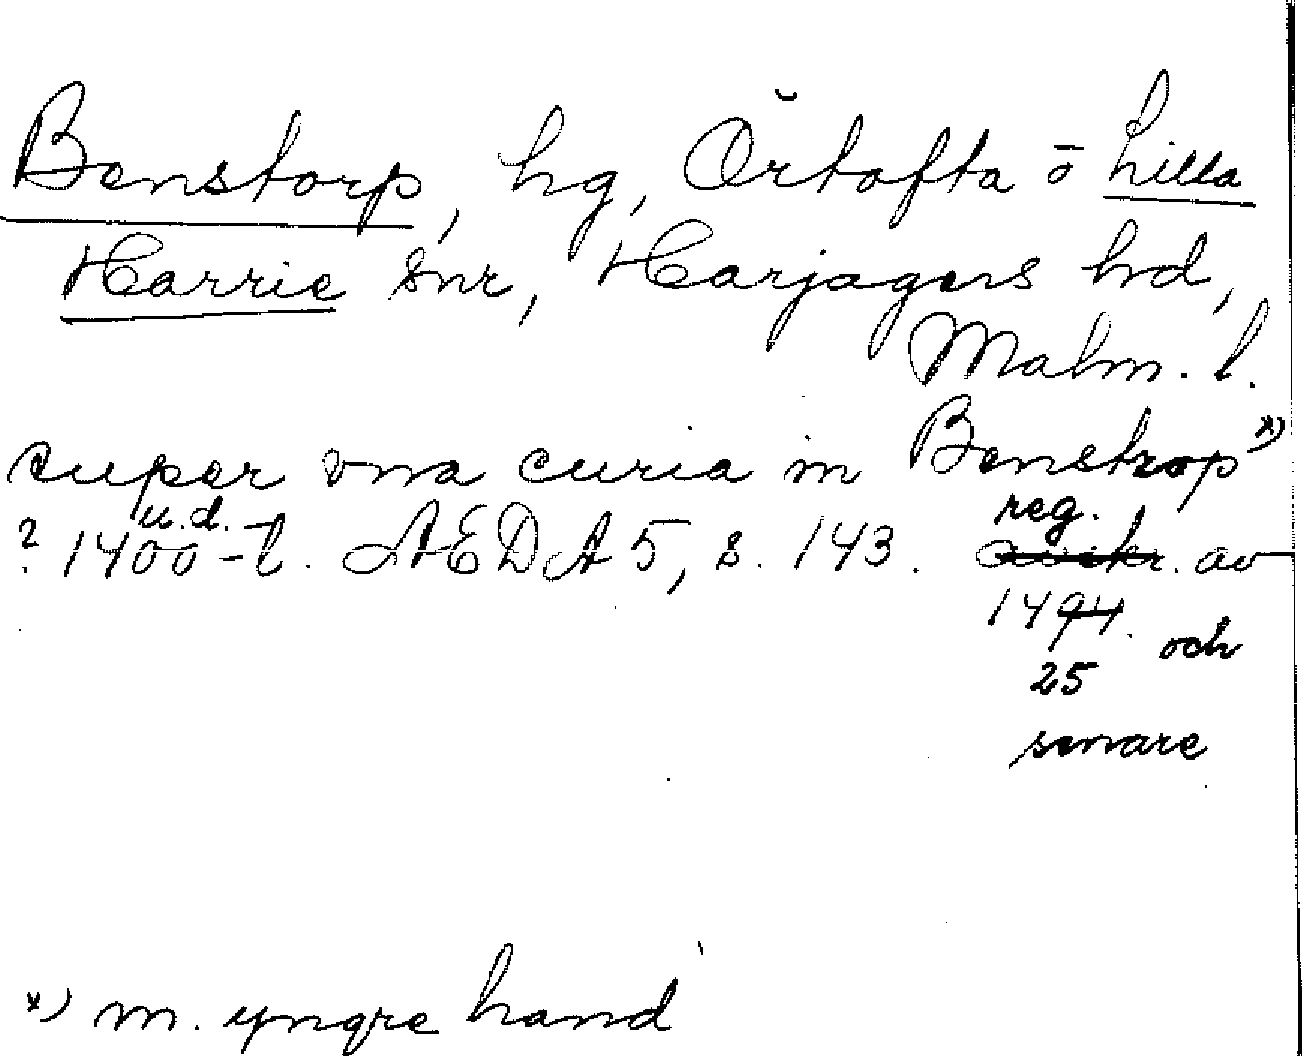 Benstorp, hg, Örtofta o Lilla
Harrie snr, Harjagers hd,
Malm. l.
super vna curia in Benstrop *)
u.d. reg.
? 1400-t. AEDA 5, s. 143. avskr. av
1494. och
25
senare
*) m. yngre hand